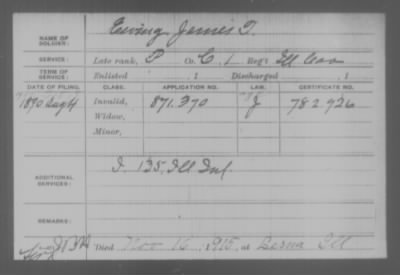 NAME OF SOLDIER: Ewing James T.
SERVICE: Late rank, P Co. C, 1 Reg't Ill Cav
TERM OF SERVICE: Enlisted , 1 Discharged , 1
DATE OF FILING. CLASS. APPLICATION NO. LAW. CERTIFICATE NO.
1890 Aug 4 Invalid, 871.370 J 782.926
Widow,
Minor,
ADDITIONAL SERVICES: I. 135, Ill Inf.
REMARKS:
Died Nov 16, 1915, at Ill